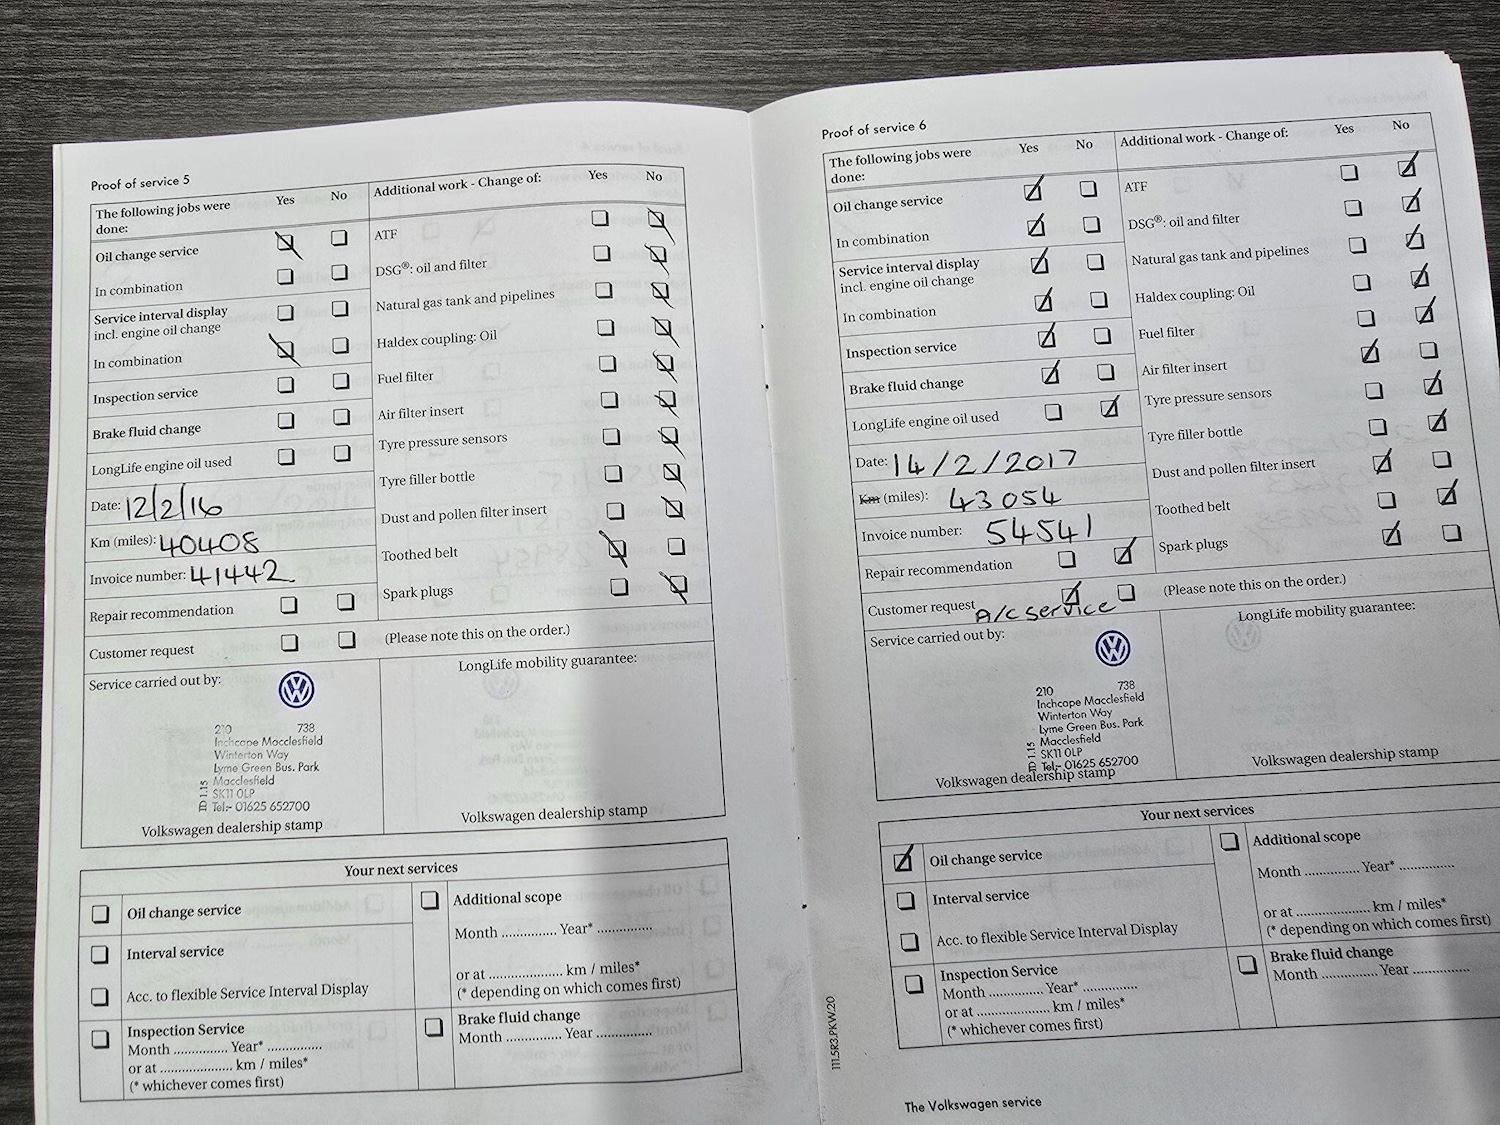 Proof of service 5
The following jobs were done: Yes No
Oil change service
In combination
Service interval display
incl. engine oil change
In combination
Inspection service
Brake fluid change
LongLife engine oil used
Date: 12/2/16
Km (miles): 40408
Invoice number: 41442
Repair recommendation
Customer request
(Please note this on the order.)
Additional work - Change of: Yes No
ATF
DSG®: oil and filter
Natural gas tank and pipelines
Haldex coupling: Oil
Fuel filter
Air filter insert
Tyre pressure sensors
Tyre filler bottle
Dust and pollen filter insert
Toothed belt
Spark plugs
Service carried out by:
210 738
Inchcape Macclesfield
Winterton Way
Lyme Green Bus. Park
Macclesfield
SK11 0LP
Tel:- 01625 652700
Volkswagen dealership stamp
LongLife mobility guarantee:
Volkswagen dealership stamp
Your next services
Oil change service
Interval service
Acc. to flexible Service Interval Display
Inspection Service
Month .............. Year* ..............
or at .................... km / miles*
(* whichever comes first)
Additional scope
Month .............. Year* ..............
or at .................... km / miles*
(* depending on which comes first)
Brake fluid change
Month .............. Year ..............
Proof of service 6
The following jobs were done: Yes No
Oil change service
In combination
Service interval display
incl. engine oil change
In combination
Inspection service
Brake fluid change
LongLife engine oil used
Date: 14/2/2017
Km (miles): 43054
Invoice number: 54541
Repair recommendation
Customer request A/C service
(Please note this on the order.)
Additional work - Change of: Yes No
ATF
DSG®: oil and filter
Natural gas tank and pipelines
Haldex coupling: Oil
Fuel filter
Air filter insert
Tyre pressure sensors
Tyre filler bottle
Dust and pollen filter insert
Toothed belt
Spark plugs
Service carried out by:
210 738
Inchcape Macclesfield
Winterton Way
Lyme Green Bus. Park
Macclesfield
SK11 0LP
Tel:- 01625 652700
Volkswagen dealership stamp
LongLife mobility guarantee:
Volkswagen dealership stamp
Your next services
Oil change service
Interval service
Acc. to flexible Service Interval Display
Inspection Service
Month .............. Year* ..............
or at .................... km / miles*
(* whichever comes first)
Additional scope
Month .............. Year* ..............
or at .................... km / miles*
(* depending on which comes first)
Brake fluid change
Month .............. Year ..............
111.5R3.PKW.20
The Volkswagen service